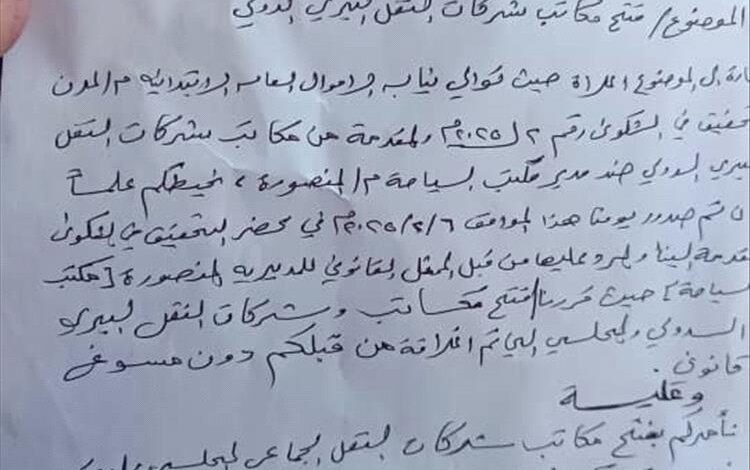 الموضوع/ فتح مكاتب شركات النقل البري الدولي
ارة الى الموضوع اعلاه حيث توالي نيابه الاموال العامه الابتدائيه م/المدن
تحقيق في الشكوى رقم ٢ ل ٢٠٢٥م والمقدمة من مكاتب شركات النقل
لبري الدولي ضد مدير مكتب السياحة م/المنصورة ، نحيطكم علماً
ان تم صدور يومنا هذا الموافق ٢٠٢٥/٢/٦م في محضر التحقيق في الشكوى
لمقدمة الينا والرد عليها من قبل الممثل القانوني للمديريه المنصورة [مكتب
لسياحة] حيث قررنا/فتح مكاتب وشركات النقل البري
الدولي والمحلي التي تم اغلاقة من قبلكم دون مسوغ
قانوني.
وعليــه
نأمركم بفتح مكاتب شركات النقل الجماعي المحلي